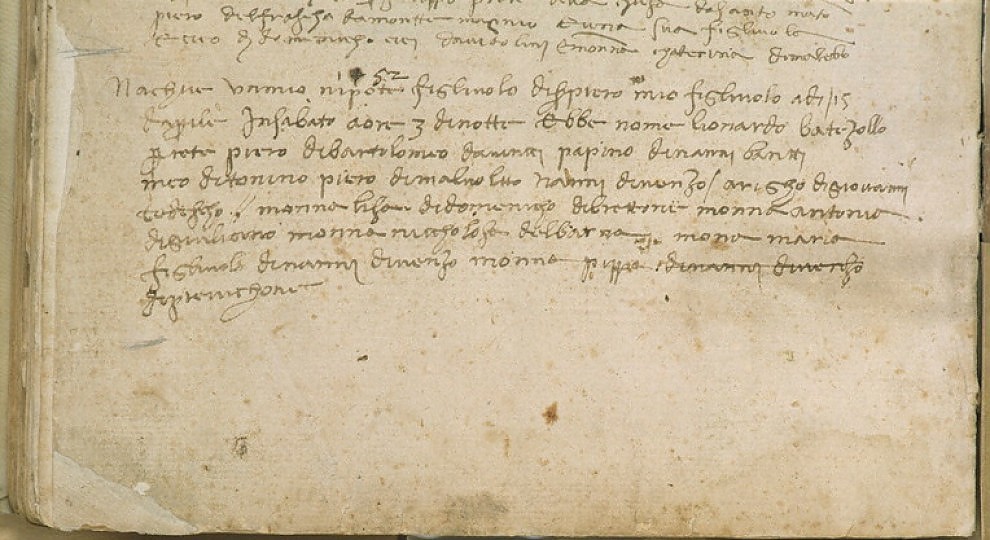 piero del frascha da monte magnio e una sua figliuola
e monna chaterina di matteo
52
Nachue un mio nipote figliuolo di s piero mio figliuolo adi 15
daprile in sabato a ore 3 di notte ebbe nome lionardo batezollo
prete piero di bartolomeo da vinci papino di nanni bantti
meo di tonino piero di malvolto nanni di venzo arigho di giovanni
tedescho monna lisa di domenicho di brettone monna antonia
di giuliano monna nicholosa del barna mona maria
figliuola di nanni di venzo monna pippa di nanni di venzo
di previchone